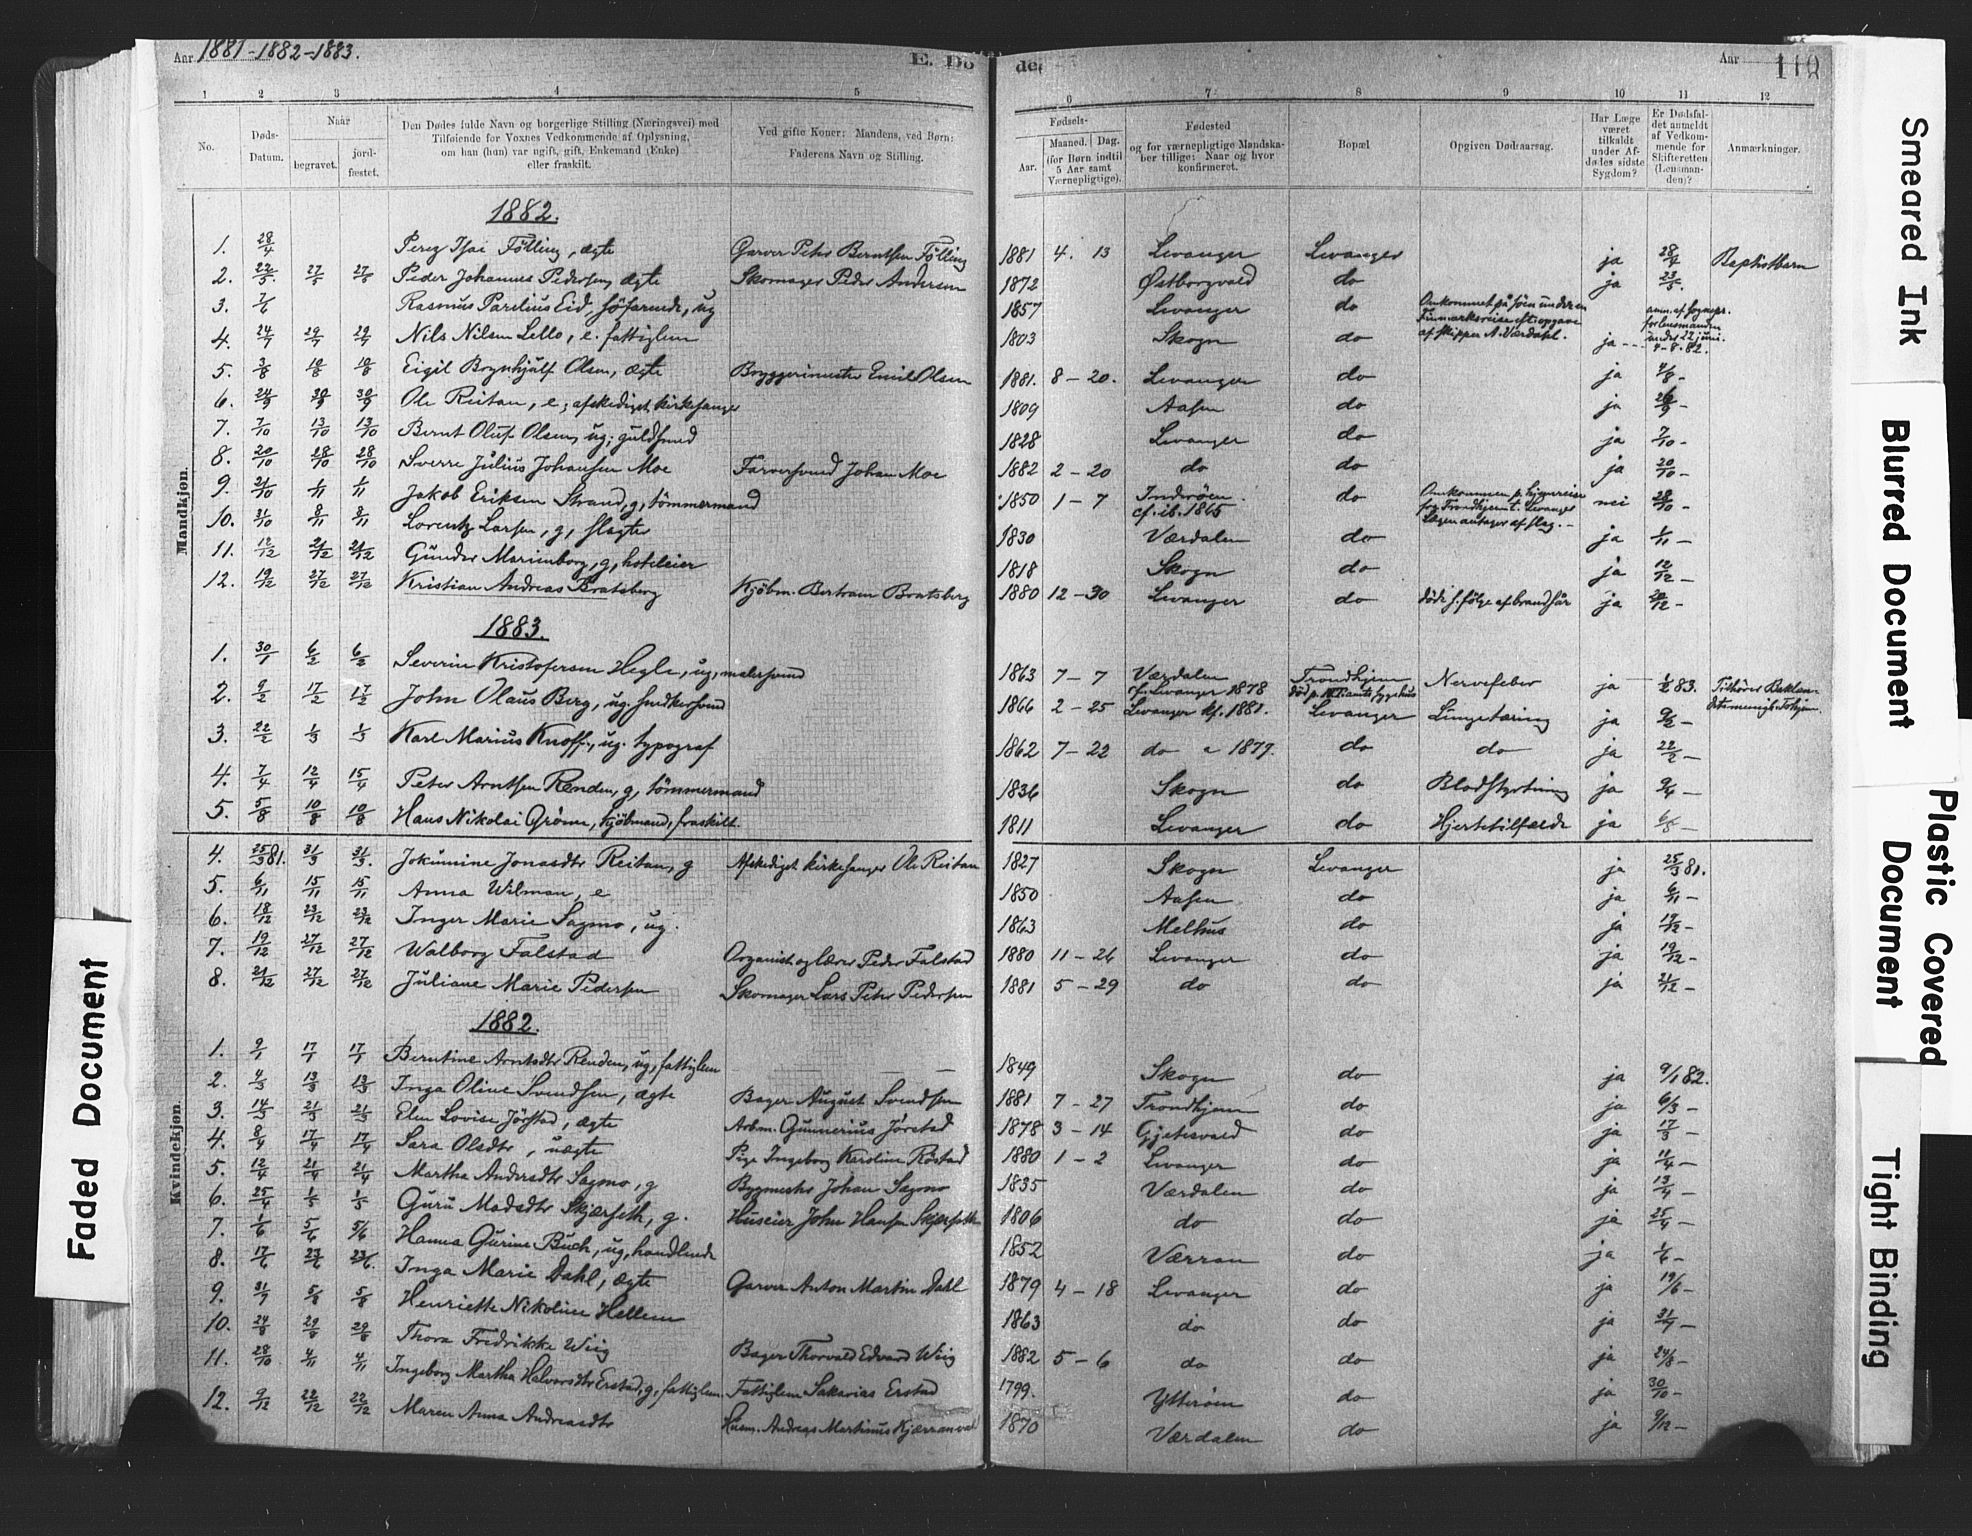 Aar 1881-1882-1883.
E. Dø
de.
Aar 110
1 2 3 4 5 6 7 8 9 10 11 12
No.
Døds-Datum.
Naar
begravet.
jord-fæstet.
Den Dødes fulde Navn og borgerlige Stilling (Næringsvei) med
Tilføiende for Voxnes Vedkommende af Oplysning,
om han (hun) var ugift, gift, Enkemand (Enke)
eller fraskilt.
Ved gifte Koner: Mandens, ved Børn:
Faderens Navn og Stilling.
Fødsels-
Aar.
Maaned. Dag.
(for Børn indtil
5 Aar samt
Værnepligtige).
Fødested
og for værnepligtige Mandska-
ber tillige: Naar og hvor
konfirmeret.
Bopæl
Opgiven Dødsaarsag.
Har Læge
været
tilkaldt
under Af-
dødes sidste
Sygdom?
Er Dødsfal-
det anmeldt
af Vedkom-
mende for
Skifteretten
(Lensman-
den)?
Anmærkninger.
Mandkjøn.
1882.
1. 28/4 Perez Isai Følling, ægte Garver Peter Berntsen Følling 1881 4. 13 Levanger Levanger ja 28/4 Baptistbarn
2. 23/5 27/5 27/5 Peder Johannes Pedersen, ægte Skomager Peder Andersen 1872 Østborgvald do ja 23/5.
3. 7/6 Rasmus Parelius Eid søfarende, ug 1857 Levanger do Omkommet på søen under en
Finmarksreise eft. opgave
af skipper A. Værdahl.
4. 24/7 29/7 29/7 Nils Nilsen Lello, e. fattiglem 1803 Skogn do ja 4-8-82.
5. 3/8 10/8 10/8 Eigil Brynhjulf Olsen, ægte Bryggerimester Emil Olsen 1881. 8-20. Levanger do ja 4/8-
6. 24/9 30/9 30/9 Ole Reitan, e; afskediget kirkesanger 1809 Aasen do ja 26/9 -
7. 7/10 13/10 13/10 Bernt Oluf Olsen, ug; guldsmed 1828 Levanger do ja 7/10 -
8. 20/10 28/10 28/10 Sverre Julius Johansen Moe Farversvend Johan Moe 1882 2-20 do do ja 20/10 -
9. 21/10 1/11 1/11 Jakob Eriksen Strand, g, tømmermand 1850 1-7 Inderøen
cf. ib. 1865 do nei 28/10 -
10. 31/10 8/11 8/11 Lorentz Larsen, g, slagter 1830 Værdalen do ja 1/11 -
11. 12/12 21/12 21/12 Gunder Marienborg, g, hoteleier 1818 Skogn do ja 12/12 -
12. 19/12 27/12 27/12 Kristian Andreas Bratsberg Kjøbm. Bertram Bratsberg 1880 12-30 Levanger do døde s. følge af brandsår ja 20/12 -
1883.
1. 30/1 6/2 6/2 Severin Kristofersen Hegle, ug, malersvend 1863 7-7 Værdalen
cf. Levanger 1878 Trondhjem
død p. N.T. amts sygehus Nervefeber ja 1/2 83.
2. 9/2 17/2 17/2 John Olaus Berg, ug, snedkersvend 1866 2-25 Levanger kf. 1881. Levanger Lungetæring ja 9/2 -
3. 22/2 1/3 1/3 Karl Marius Knoff, ug. typograf 1862 7-22 do " 1877. do do ja 22/2 -
4. 7/4 12/4 15/4 Peter Arntsen Renden, g, tømmermand 1836 Skogn do Blodstyrtning ja 9/4 -
5. 5/8 10/8 10/8 Hans Nikolai Grønn, kjøbmand, fraskilt. 1811 Levanger do Hjertetilfælde ja 6/8 -
Kvindekjøn.
4. 25/3 81. 31/3 31/3. Jokumine Jonasdtr Reitan, g Afskediget kirkesanger Ole Reitan 1827 Skogn Levanger ja 25/3 81.
5. 6/11 15/11 15/11 Anna Wilman, e 1850 Aasen do ja 6/11 -
6. 18/12 23/12 23/12 Inger Marie Sagmo, ug. 1863 Melhus do ja 19/12 -
7. 19/12 27/12 27/12 Walborg Falstad Organist og lærer Peder Falstad 1880 11-26 Levanger do ja 19/12 -
8. 21/12 27/12 27/12 Juliane Marie Pedersen Skomager Lars Peter Pedersen 1881 5-29 do do ja 21/12 -
1882.
1. 9/1 17/1 17/1 Berntine Arntsdtr Renden, ug, fattiglem 1849 Skogn do ja 9/1 82.
2. 4/3 13/3 13/3 Inga Oline Svendsen, ægte Bager August Svendsen 1881 7-27 Trondhjem do ja 6/3 -
3. 14/3 21/3 21/3 Elen Lovise Jørstad, ægte Arbm. Gunnerius Jørstad 1878 3-14 do ja 17/3 -
4. 8/4 17/4 17/4 Sara Olsdtr, uægte Pige Ingeborg Karoline Røstad 1880 1-2 Levanger do ja 11/4 -
5. 12/4 21/4 21/4 Martha Andersdtr Sagmo, g Bygmester Johan Sagmo 1835 Værdalen do ja 13/4 -
6. 25/4 1/5 1/5 Guru Madsdtr Skjærseth, g. Huseier John Hansen Skjærseth 1806 do do ja 25/4 -
7. 1/6 5/6 5/6 Hanna Gurine Buch, ug, handlende 1852 Værran do ja 1/6 -
8. 17/6 23/6 23/6. Inga Marie Dahl, ægte Garver Anton Martin Dahl 1879 4-18 Levanger do ja 19/6 -
9. 31/7 5/8 5/8 Henriette Nikoline Hellem 1863 do do ja 31/7 -
10. 24/8 29/8 29/8 Thora Fredrikke Wiig Bager Thorvald Edvard Wiig 1882 5-6 do do ja 24/8 -
11. 28/10 4/11 4/11 Ingeborg Martha Halvorsdtr Erstad, g, fattiglem. Fattiglem Sakarias Erstad 1799. Ytterøen do ja 30/10 -
12. 9/12 22/12 22/12 Maren Anna Andreasdtr Husm. Andreas Martinus Kjærranvald 1870 Værdalen do ja 9/12 -
Faded Document
Smeared Ink
Blurred Document
Plastic Covered Document
Tight Binding